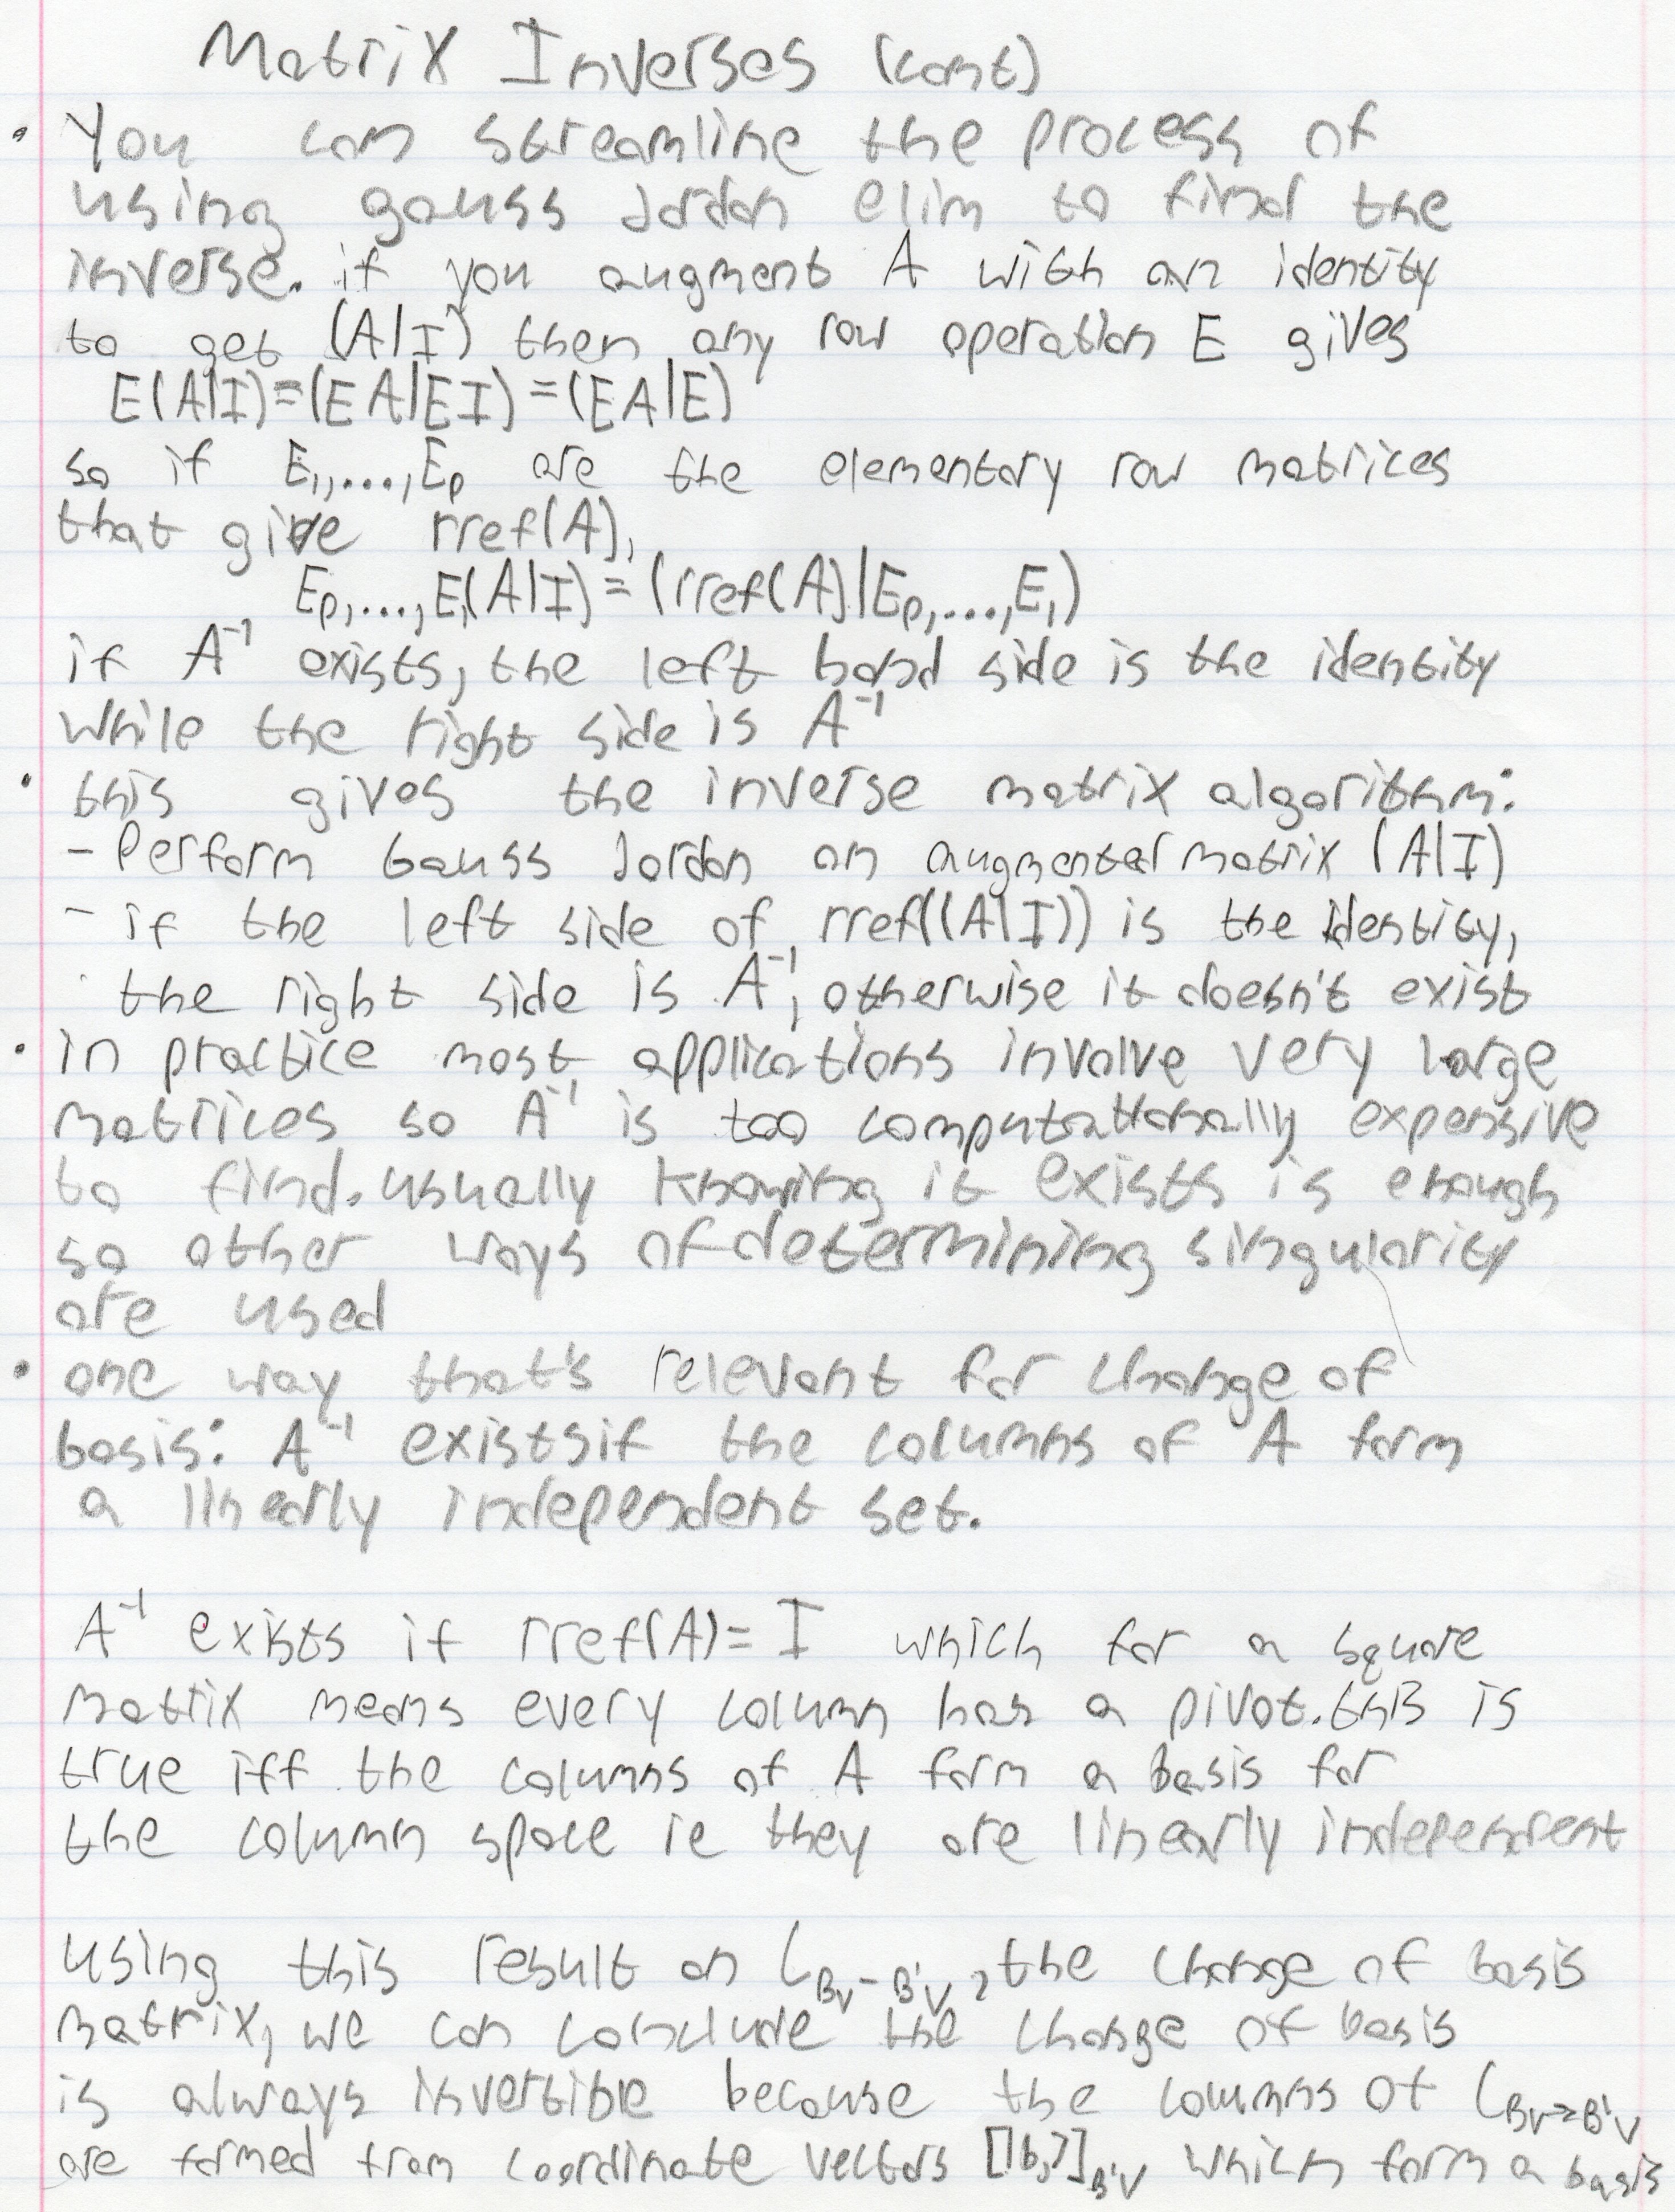 Matrix Inverses (cont)
• You can streamline the process of
using gauss Jordan elim to find the
inverse. if you augment A with an identity
to get (A|I) then any row operation E gives
E(A|I)=(EA|EI)=(EA|E)
so if E₁,...,Eₚ are the elementary row matrices
that give rref(A),
Eₚ,...,E₁(A|I)=(rref(A)|Eₚ,...,E₁)
if A⁻¹ exists, the left hand side is the identity
while the right side is A⁻¹
• this gives the inverse matrix algorithm:
- Perform Gauss Jordan on augmented matrix (A|I)
- if the left side of rref((A|I)) is the identity,
the right side is A⁻¹, otherwise it doesn't exist
• in practice most applications involve very large
matrices so A⁻¹ is too computationally expensive
to find. usually knowing it exists is enough
so other ways of determining singularity
are used
• one way that's relevant for change of
basis: A⁻¹ exists if the columns of A form
a linearly independent set.
A⁻¹ exists if rref(A)=I which for a square
matrix means every column has a pivot. this is
true iff the columns of A form a basis for
the column space ie they are linearly independent
using this result on C_{Bv→B'v}, the change of basis
matrix, we can conclude the change of basis
is always invertible because the columns of C_{Bv→B'v}
are formed from coordinate vectors [|b_i⟩]_{B'v} which form a basis